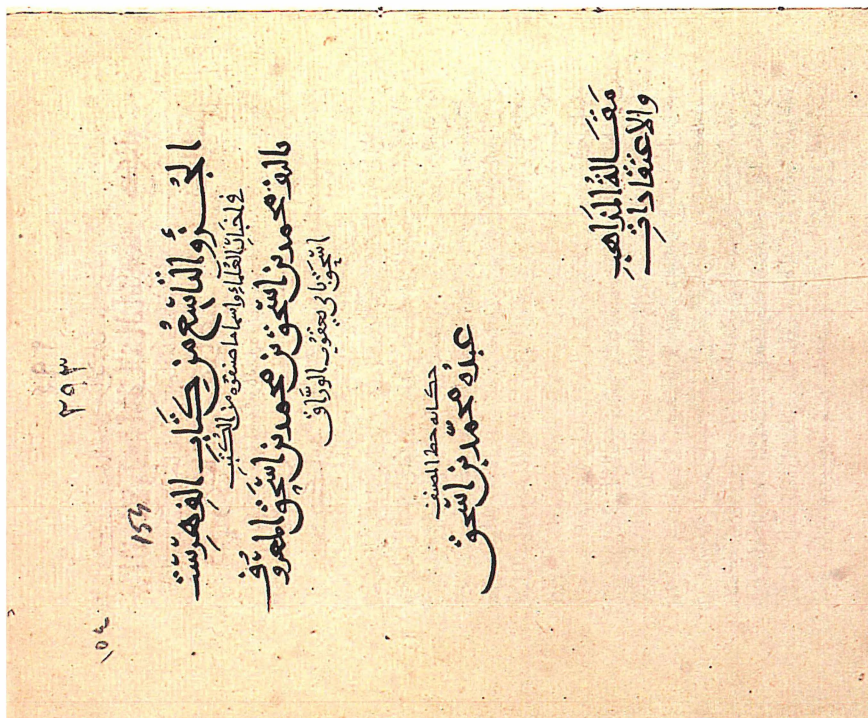 ١٥٤
٢٩٣
154
الجزؤ التاسع من كتاب الفهرست
في اخبار العلماء واسما ما صنفوه من الكتب
تاليف محمد بن اسحق بن محمد بن اسحق المعروف
اسحق بابي يعقوب الوراق
حكاية خط المصنف
عبده محمد بن اسحق
مقالة المذاهب
والاعتقادات